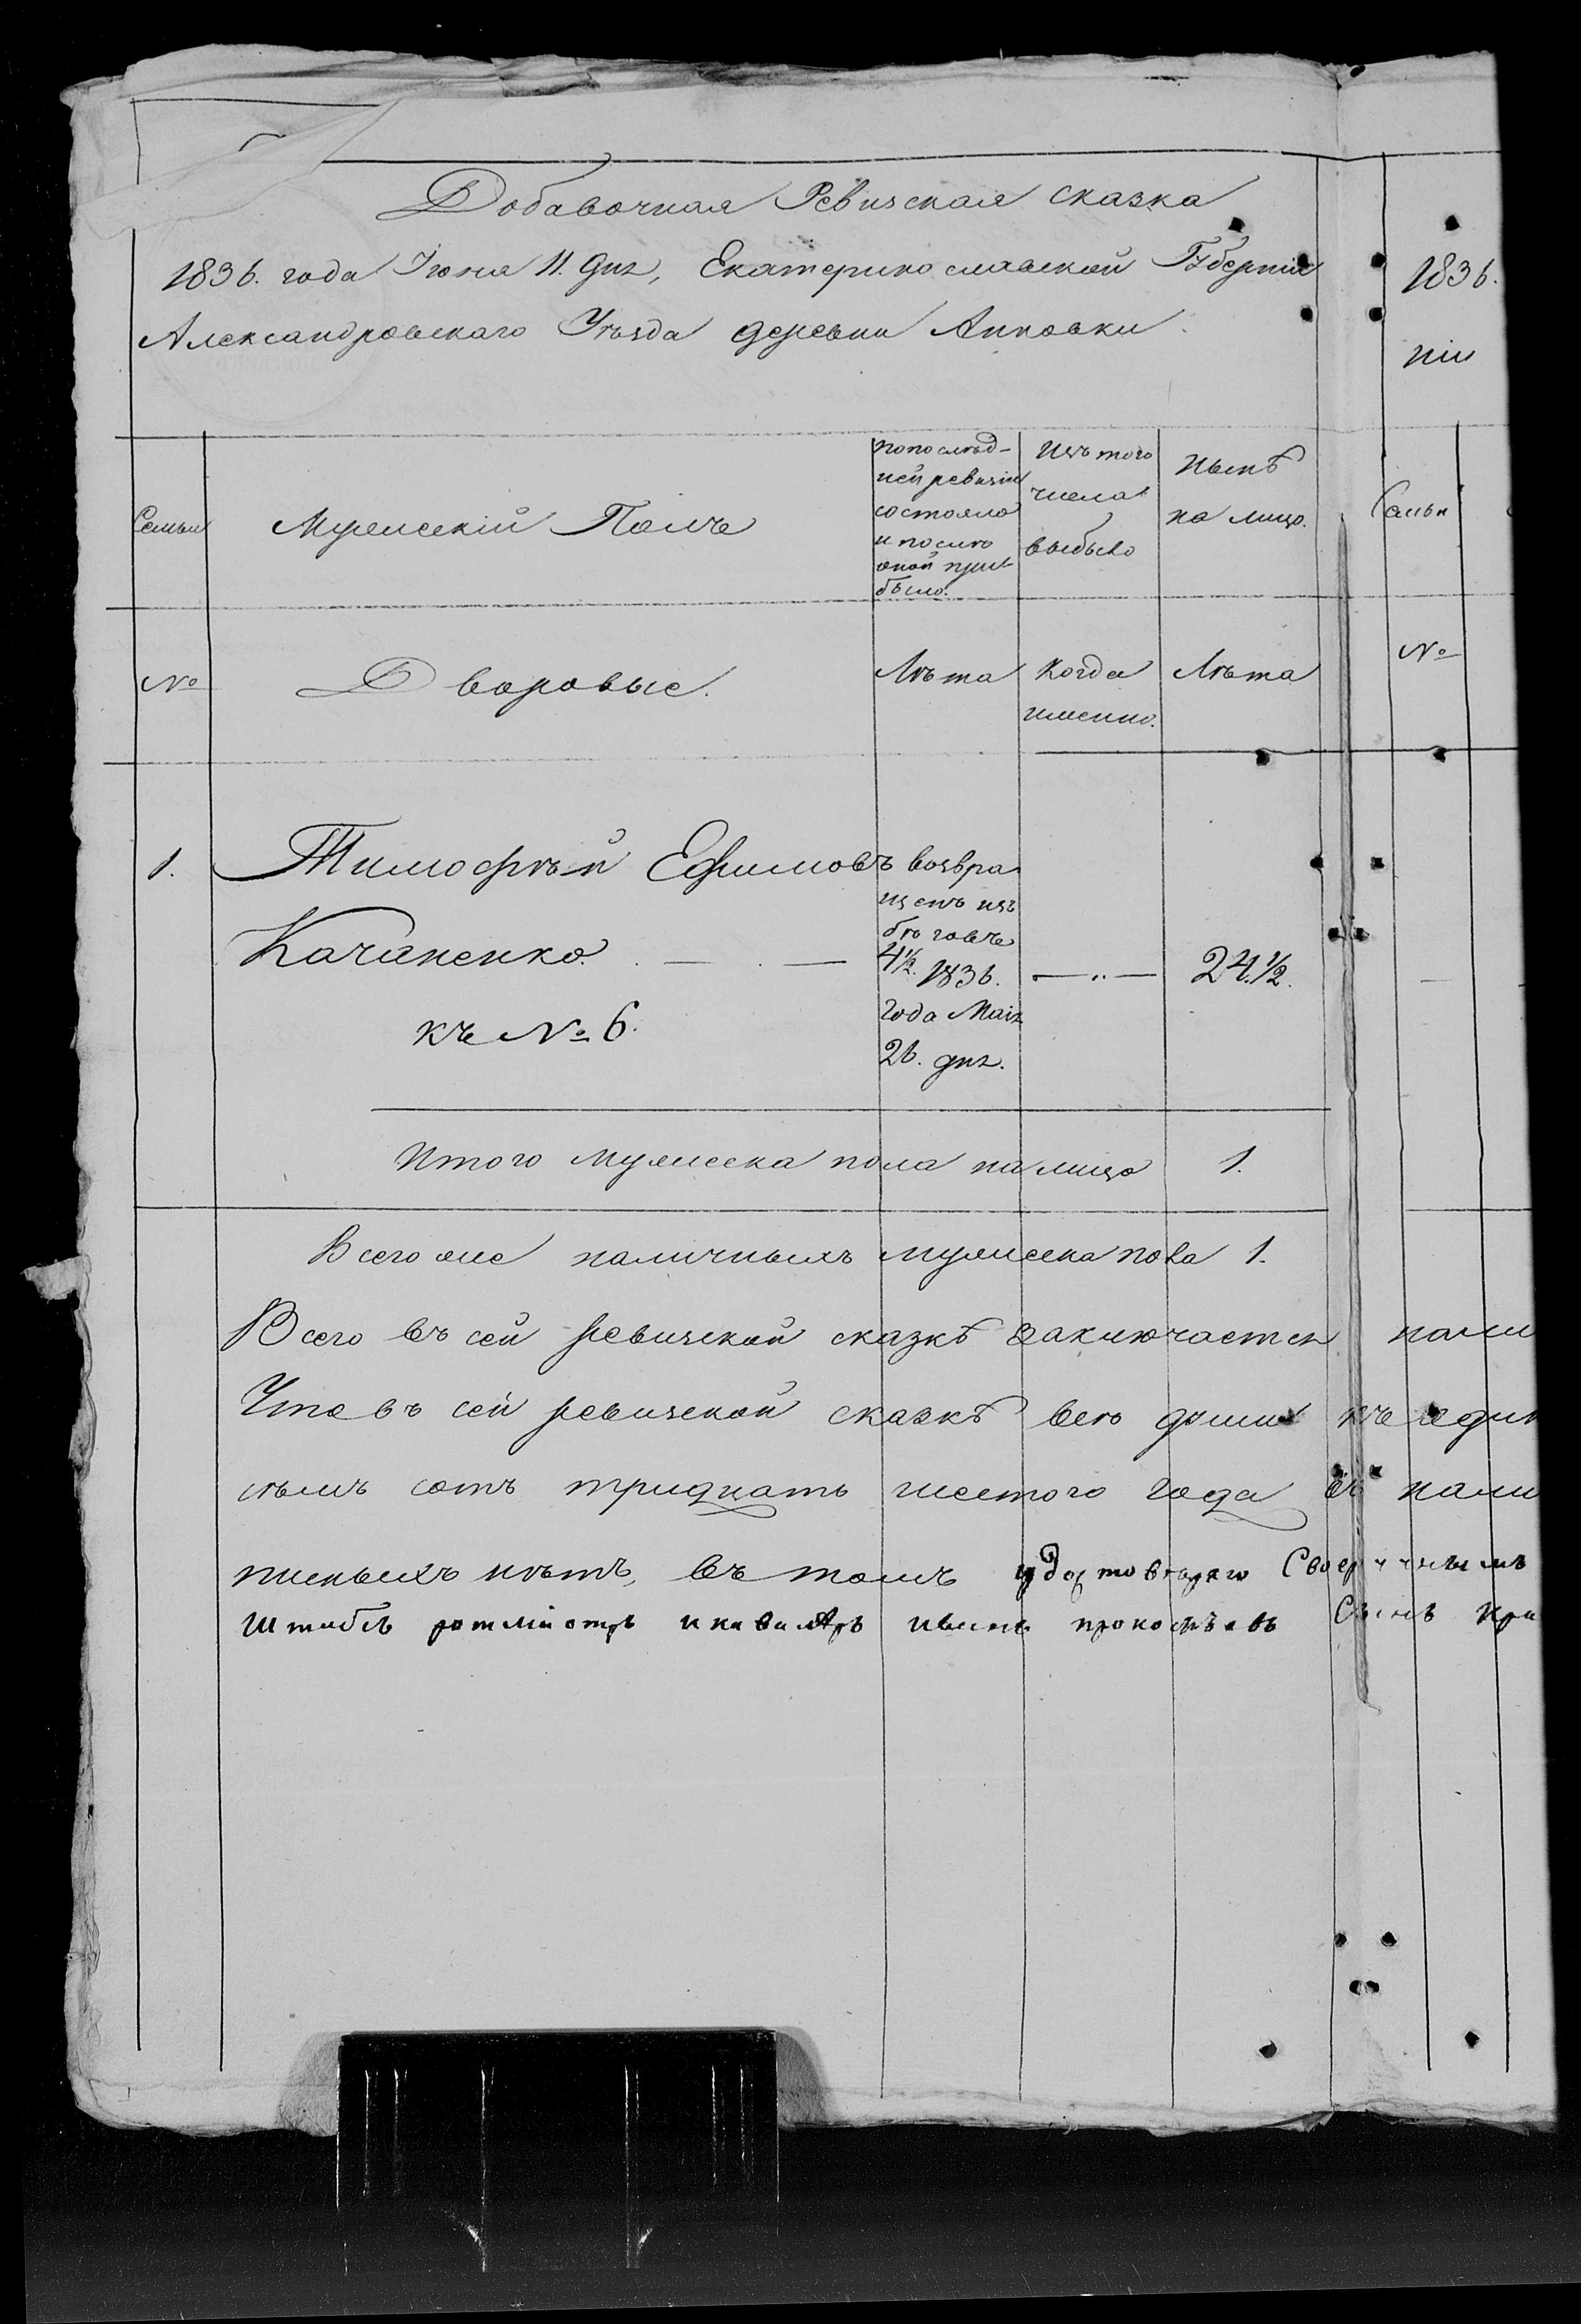 Добавочная Ревизская сказка
1836. года Іюня 11. дня, Екатеринославской Губерніи
Александровскаго Уѣзда деревни Анновки
Семьи
Мужескій Полъ
по послѣд-
ней ревизіи
состояло
и послѣ
оной при-
было.
Изъ того
числа
выбыло
Нынѣ
на лицо.
№
Дворовые.
Лѣта
Когда
именно.
Лѣта
1.
Тимофѣй Ефимовъ
Качаненко
къ № 6.
возвра
щенъ изъ
бѣговъ
4½. 1836.
года Маія
26. дня.
24.½.
Итого мужеска пола на лицо 1.
Всего же наличныхъ мужеска пола 1.
Всего въ сей ревизской сказкѣ заключается нали
Что въ сей ревизской сказкѣ всѣ души къ
емь сотъ тридцать шестого года нали
писныхъ нѣтъ, въ томъ удостовѣряю
Штабсъ ротмистръ и кавалеръ
1836.
ніи
Семьи
№